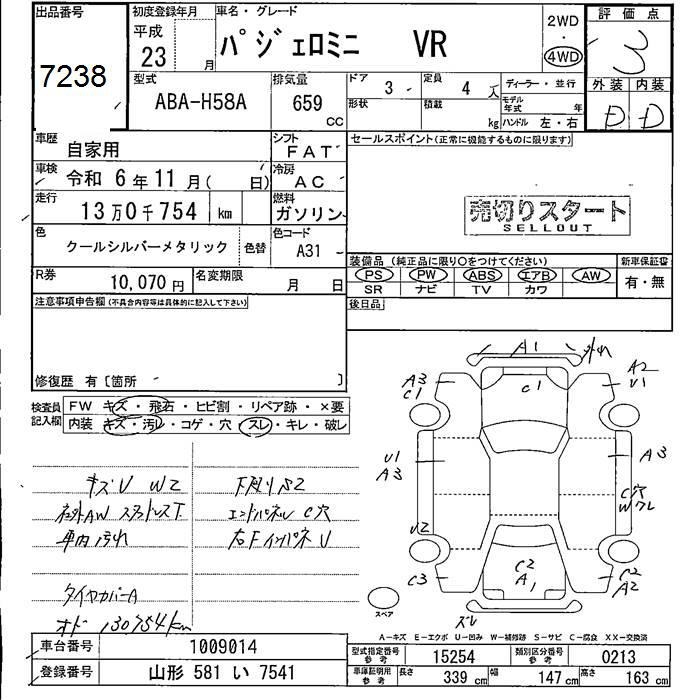 出品番号
7238
初度登録年月
平成
23 月
車名・グレード
パジェロミニ VR
2WD
・
4WD
評価点
3
外装 内装
D D
型式
ABA-H58A
排気量
659
CC
ドア
3
形状
定員
4 人
積載
kg
ディーラー・並行
モデル年式 年
ハンドル 左・右
車歴
自家用
シフト
FAT
車検
令和 6年11月( 日)
冷房
AC
走行
13万0千754 km
燃料
ガソリン
色
クールシルバーメタリック
色替
色コード
A31
R券
10,070円
名変期限
月 日
セールスポイント(正常に機能するものに限ります)
売切りスタート
SELLOUT
装備品 (純正品に限り○をつけてください)
PS PW ABS エアB AW
SR ナビ TV カワ
新車保証書
有・無
後日品
注意事項申告欄(不具合内容等は具体的に記入して下さい)
修復歴 有〔箇所 〕
検査員記入欄
FW キズ・飛石・ヒビ割・リペア跡・×要
内装 キズ・汚レ・コゲ・穴・スレ・キレ・破レ
キズU W2
社外AW スタッドレスT
車内汚れ
タイヤカバーA
オド 130754km
下廻りS2
エンドパネル C穴
右Fインパネ U
A1
C1
A3
C1
A2
U1
U1
A3
A3
C穴
W
U2
C3
C2
A1
C2
A2
ズレ
スペア
A―キズ E―エクボ U―凹み W―補修跡 S―サビ C―腐食 XX―交換済
車台番号
1009014
登録番号
山形 581 い 7541
型式指定番号
参考
15254
類別区分番号
参考
0213
車庫証明用
参考
長さ 339 cm
幅 147 cm
高さ 163 cm